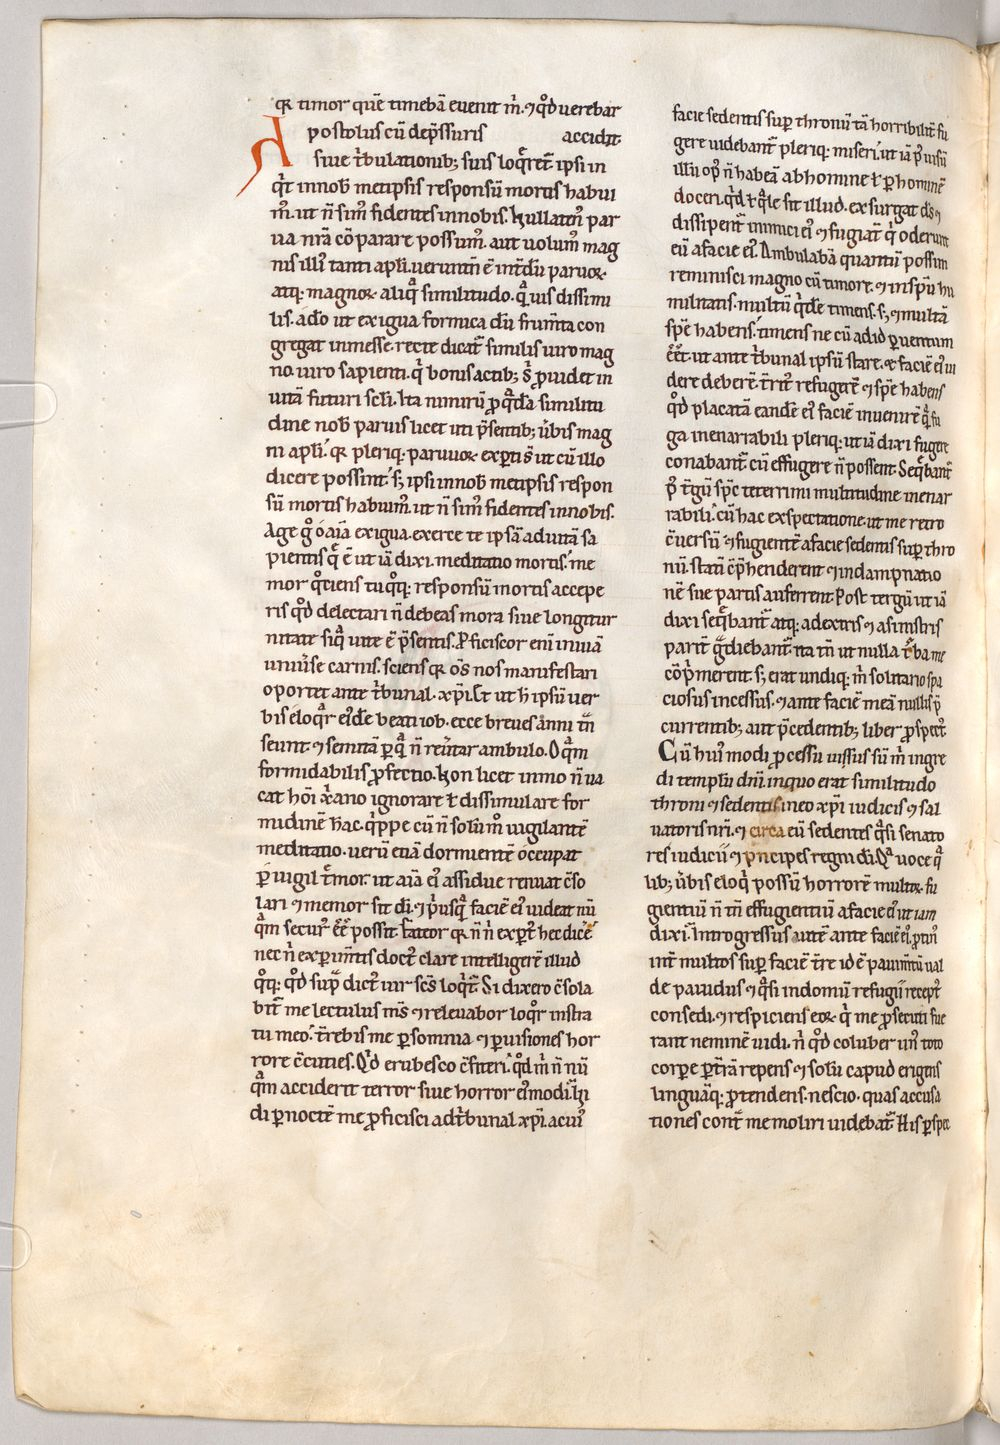 qr timor quē timebā evenit m̄. ⁊ qd̄ verebar
Apostolus cū dep̄ssuris accidit.
sive tr̄bulationib; suis loq̄ret̄ ipsi in
q̄t innob̄ metipsis responsū mortis habui
m᷒. ut n̄ sim᷒ fidentes innobis. Nullaten᷒ par
va nr̄a cōparare possum᷒. aut volum᷒ mag
nis illi᷒ tanti apl̄i. verunt̄n ē int̄dū parvoꝝ
atq; magnoꝝ aliq̄ similitudo. q̄ vis dissimi
lis. adeo ut exigua formica dū frum̄ta con
gregat inmesse. recte dicat̄ similis viro mag
no. viro sapienti. q̄ bonis actib; s̄ ꝓvidet in
vitā futuri sc̄li. Ita nimirū ꝓ q̄dā similitu
dine nob̄ parvis licet uti p̄sentib; v̄bis mag
ni apl̄i. qr pleriq; parvuoꝝ exp̄tis ut cū illo
dicere possint. s; ipsi innob̄ metipsis respon
sū mortis habuim᷒. ut n̄ sim᷒ fidentes innobis.
Age g̊ o aīa exigua. exerce te ipsā ad vitā sa
pientis q̄ ē ut iā dixi. meditatio mortis. me
mor q̊tiens tu q̊q; responsū mortis accepe
ris qd̄ delectari n̄ debeas mora sive longitur
nitate siq̄ vite ē p̄sentis. Proficiscor eni in viā
univ̄se carnis. sciens qr ōs nos manifestari
oportet ante tr̄bunal xp̄i. Et ut h̄ ipsū ver
bis eloq̄r ei᷒de beati iob. ecce breves anni tn̄
seunt ⁊ semitā ꝑ q̄ n̄ rev̄tar ambulo. O q̄m
formidabilis ꝓfectio. Non licet immo n̄ va
cat hōi xr̄ano ignorare ł dissimulare for
midinē hāc. q̄ppe cū n̄ solūm᷒ vigilantē
meditatio. verū etiā dormientē occupat
p̄ vigil tīmor. ut aīā ei᷒ assidue renuat c̄so
lari ⁊ memor sit dī. ⁊ p̄usq̄ faciē ei᷒ videat nū
q̄m secur᷒ ēē possit. fateor qr n̄ n̄ exꝑt᷒ hec dicē
nec n̄ exꝑim̄tis doct᷒ clare intelligerē illud
q̊q; qd̄ sup̄ dict᷒ vir sc̄s loq̄t̄. Si dixero c̄sola
bit̄ me lectulus m̄s ⁊ relevabor loq̊r instra
tu meo. t̄rebis me ꝑ somnia ⁊ ꝑ visiones hor
rore c̄cuties. Qd̄ erubesco c̄fiteri. qd̄ m̄ n̄ nū
q̄m acciderit terror sive horror ei᷒modi. Vi
di ꝑ noctē me ꝓficisci ad tr̄bunal xp̄i. a cui᷒
facie sedentis suꝑ thronū tā horribilit̄ fu
gere videbant̄ pleriq; miseri. ut iā p̄ visū
illū op᷒ n̄ habeā ab homine ł ꝑ hominē
doceri. q̄d ł q̄le sit illud. exsurgat d̄s ⁊
dissipent̄ inimici ei᷒ ⁊ fugiat̄ q̄ oderunt
eū a facie ei᷒. Ambulabā quantū possum
reminisci magno cū timore. ⁊ in sp̄u hu
militatis. multū q̄de timens. s; ⁊ multā
spē habens. timens ne cū ad id ꝑventum
ēēt. ut ante tr̄bunal ipsū stare. & faciē ei᷒ vi
dere deberē. t̄rit᷒ refugerē ⁊ spē habens
qd̄ placatā eandē ei᷒ faciē invenirē q̄ fu
ga inenarrabili pleriq; ut iā dixi fugere
conabant̄. cū effugere n̄ possent. Seq̄bant̄
p᷒ t̄gū spēc teterrimi multitudine inenar
rabili. cū hac exspectatione. ut me retro
c̄versū ⁊ fugientē a facie sedentis suꝑ thro
nū. statī cp̄henderent ⁊ in dampnatio
nē sue partis auferrent. Post tergū ut iā
dixi seq̄bant̄ atq; a dextris ⁊ a sinistris
parit̄ g̊diebant̄. ita tn̄ ut nulla tr̄ba me
cōp̄merent. s; erat undiq; m̄ solitario spa
ciosus incessus. ⁊ ante faciē meā nullis p̄
currentib; aut p̄cedentib; liber ꝓspect᷒.
Cū hui᷒modi ꝓcessu vissus sū m̄ ingre
di templū dn̄i. in quo erat similitudo
throni ⁊ sedentis in eo xp̄i iudicis ⁊ sal
vatoris nr̄i. ⁊ circa eū sedentes q̄si senato
res iudicii ⁊ principes regni dī. Qa voce q̄
lib; v̄bis eloq̄ possū horrorē multoꝝ fu
gientiū n̄ tn̄ effugientiū a facie ei᷒ ut iam
dixi. Introgressus autē ante faciē ei᷒. ꝓtin᷒
int̄ multos suꝑ faciē t̄re id ē pavim̄tū val
de pavidus ⁊ q̄si in domū refugii recept᷒
consedi. ⁊ respiciens eoꝝ q̄ me ꝓsecuti fue
rant neminē vidi. n̄ qd̄ coluber un᷒ toto
corꝑe ꝑ t̄rā repens ⁊ solū capud erigens
linguāq; ꝓtendens. nescio quas accusa
tiones cont̄ me moliri videbat̄. His ꝑspec